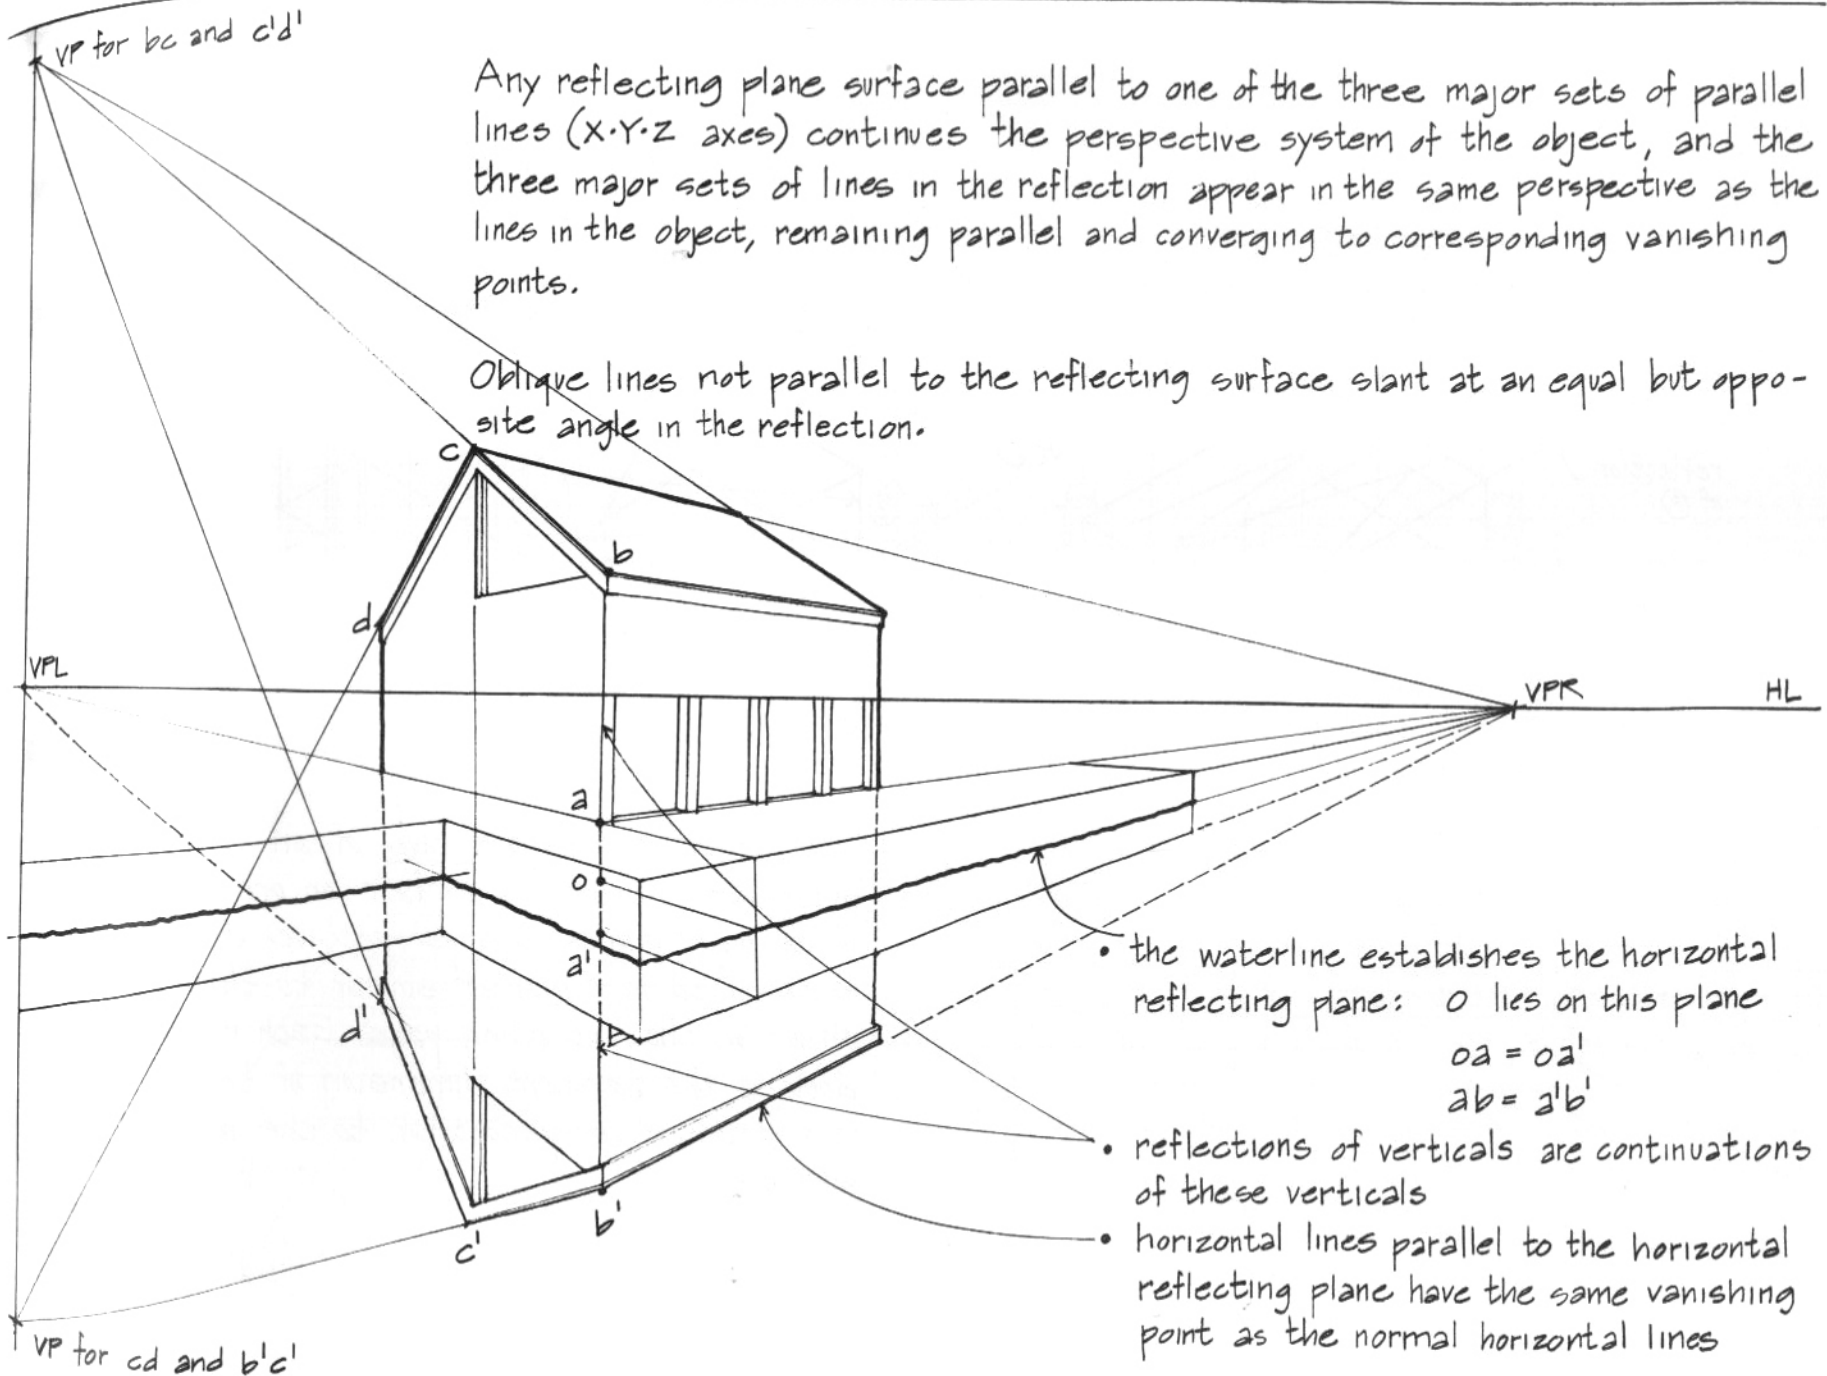 VP for bc and c'd'
Any reflecting plane surface parallel to one of the three major sets of parallel
lines (X·Y·Z axes) continues the perspective system of the object, and the
three major sets of lines in the reflection appear in the same perspective as the
lines in the object, remaining parallel and converging to corresponding vanishing
points.
Oblique lines not parallel to the reflecting surface slant at an equal but oppo-
site angle in the reflection.
c
b
d
VPL
VPR
HL
a
o
a'
d'
c'
b'
• the waterline establishes the horizontal
reflecting plane: O lies on this plane
oa = oa'
ab = a'b'
• reflections of verticals are continuations
of these verticals
• horizontal lines parallel to the horizontal
reflecting plane have the same vanishing
point as the normal horizontal lines
VP for cd and b'c'